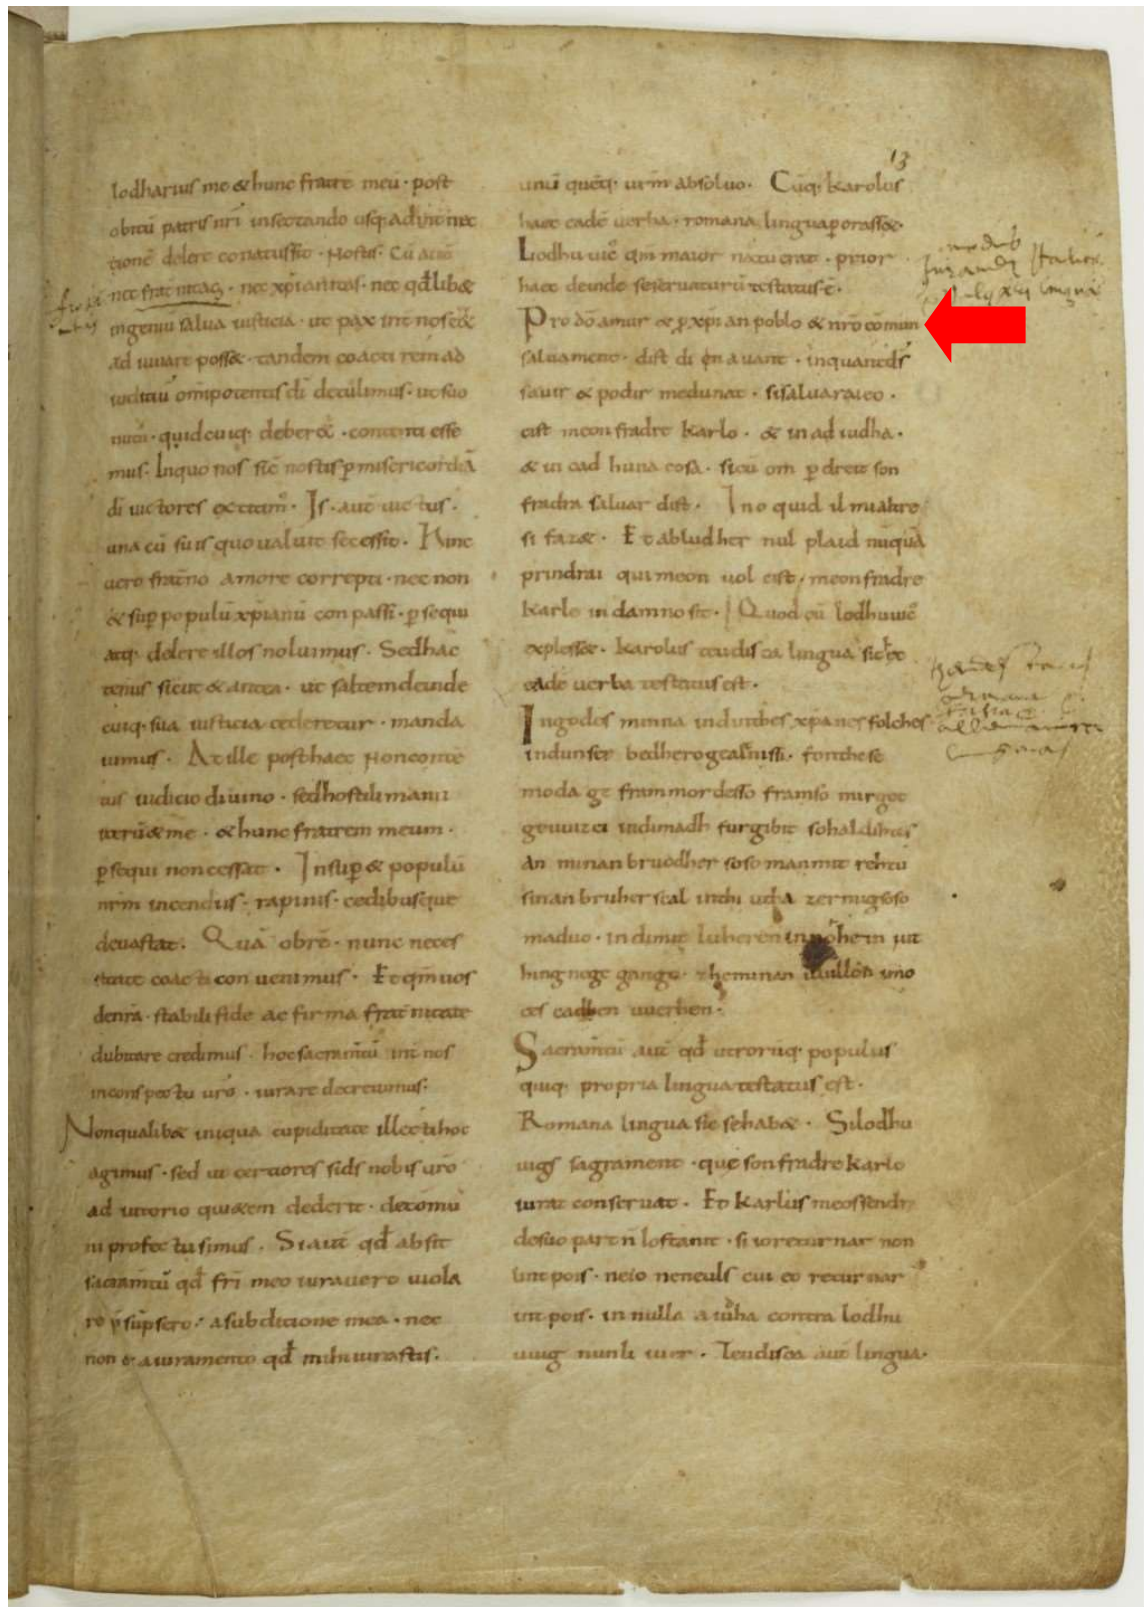 lodharius me & hunc fratrē meū · post
obitū patris nr̄i insectando usq; ad int̄nec
tionē delere conatus sit · Nostis · Cū aūt
nec fraternitas · nec xp̄ianitas · nec qd̄lib&
ingeniū salua iusticia · ut pax int̄ nos e&
adiuuare poss& · tandem coacti rem ad
iuditiū om̄ipotentis dī detulimus · ut suo
nutu · quid cuiq; deber& · contenti esse
mus · In quo nos sic̄ nostis ꝑ misericordiā
di uictores extitim; · Is · aut̄ uictus ·
una cū suis quo ualuit secessit · Hinc
uero fr̄atno amore correpti · nec non
& suꝑ populū xp̄ianū conpassi · ꝑsequi
atq; delere illos noluimus · Sed hac
tenus sicut & antea · ut saltem deinde
cuiq; sua iusticia cederetur · manda
uimus · At ille post haec non conten
tus iudicio diuino · sed hostili manu
iterū & me · & hunc fratrem meum ·
ꝑsequi non cessat · Insuꝑ & populū
nr̄m incendiis · rapinis · cedibusque
deuastat · Quā obrē · nunc neces
sitate coacti conuenimus · Et qm̄ uos
de nr̄a · stabili fide ac firma fraternitate
dubitare credimus · hoc sacram̄tū int̄ nos
in conspectu uro · iurare decreuimus ·
Non qualib& iniqua cupiditate illecti hoc
agimus · sed ut certiores si ds nobis uro
adiutorio qui&em dederit · de cōmu
ni profectu simus · Si aut̄ qd̄ absit
sacram̄tū qd̄ fr̄i meo iurauero uiola
re p̄supsero · a subditione mea · nec
non & a iuramento qd̄ mihi iurastis ·
13
unū quēq; ur̄m absoluo · Cūq; karolus
haec eadē uerba · romana lingua ꝑorass& ·
Lodhuuic̄ qm̄ maior natu erat · prior
haec deinde se seruaturū testatus ē ·
Pro dō amur & ꝓ xp̄ian poblo & nr̄o cōmun
saluament · dist di en auant · inquant ds̄
sauir & podir me dunat · si saluarai eo ·
cist meon fradre karlo · & in adiudha ·
& in cad huna cosa · sicū om ꝑ dreit son
fradra saluar dist · Ino quid il mi altre
si faz& · Et ab ludher nul plaid nūquā
prindrai qui meon uol cist · meon fradre
karle in damno sit · Quod cū lodhuuic̄
expless& · karolus teudisca lingua sic ec
eadē uerba testatus est ·
In godes minna ind inthes xp̄anes folches
ind unser bedhero gealtnissi · fon these
moda ge frammordesso fram so mir got
geuuizci indi madh furgibit so hald ih tes
an minan bruodher soso man mit rehtu
sinan bruher scal inthi utha zermig soso
maduo · indi mit luheren in nohein iut
hing nege gango · zhe minan uuillon imo
ces cadhen uuerhen ·
Sacram̄tū aut̄ qd̄ utrorūq; populus
quiq; propria lingua testatus est ·
Romana lingua sic se hab& · Si lodhu
uigs sagrament · que son fradre karlo
iurat conseruat · Et karlus meos sendr̄
de suo part n̄ lo stanit · si io returnar non
lint pois · ne io ne neuls cui eo returnar
int pois · in nulla aiuha contra lodhu
uuig nun li iuer · Teudisca aut̄ lingua ·